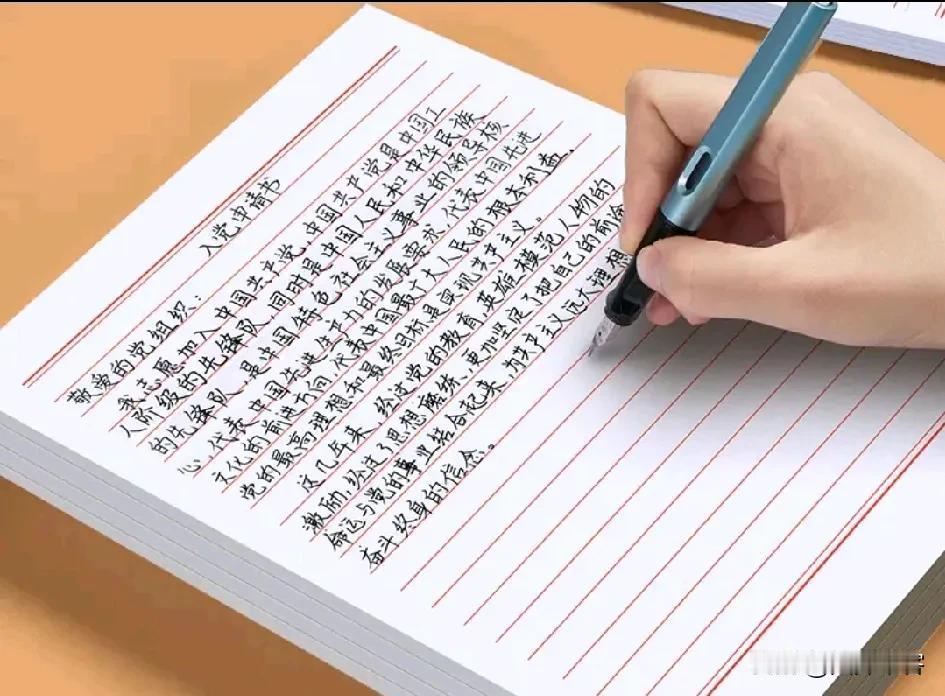 入党申请书
敬爱的党组织:
我志愿加入中国共产党,中国共产党是中国工
人阶级的先锋队,同时是中国人民和中华民族
的先锋队,是中国特色社会主义事业的领导核
心,代表中国先进生产力的发展要求,代表中国先进
文化的前进方向,代表中国最广大人民的根本利益。
党的最高理想和最终目标是实现共产主义。
这几年来,经过党的教育,英雄模范人物的
激励,经过了思想磨练,更加坚定了把自己的前途
命运与党的事业结合起来,为共产主义远大理想
奋斗终身的信念。